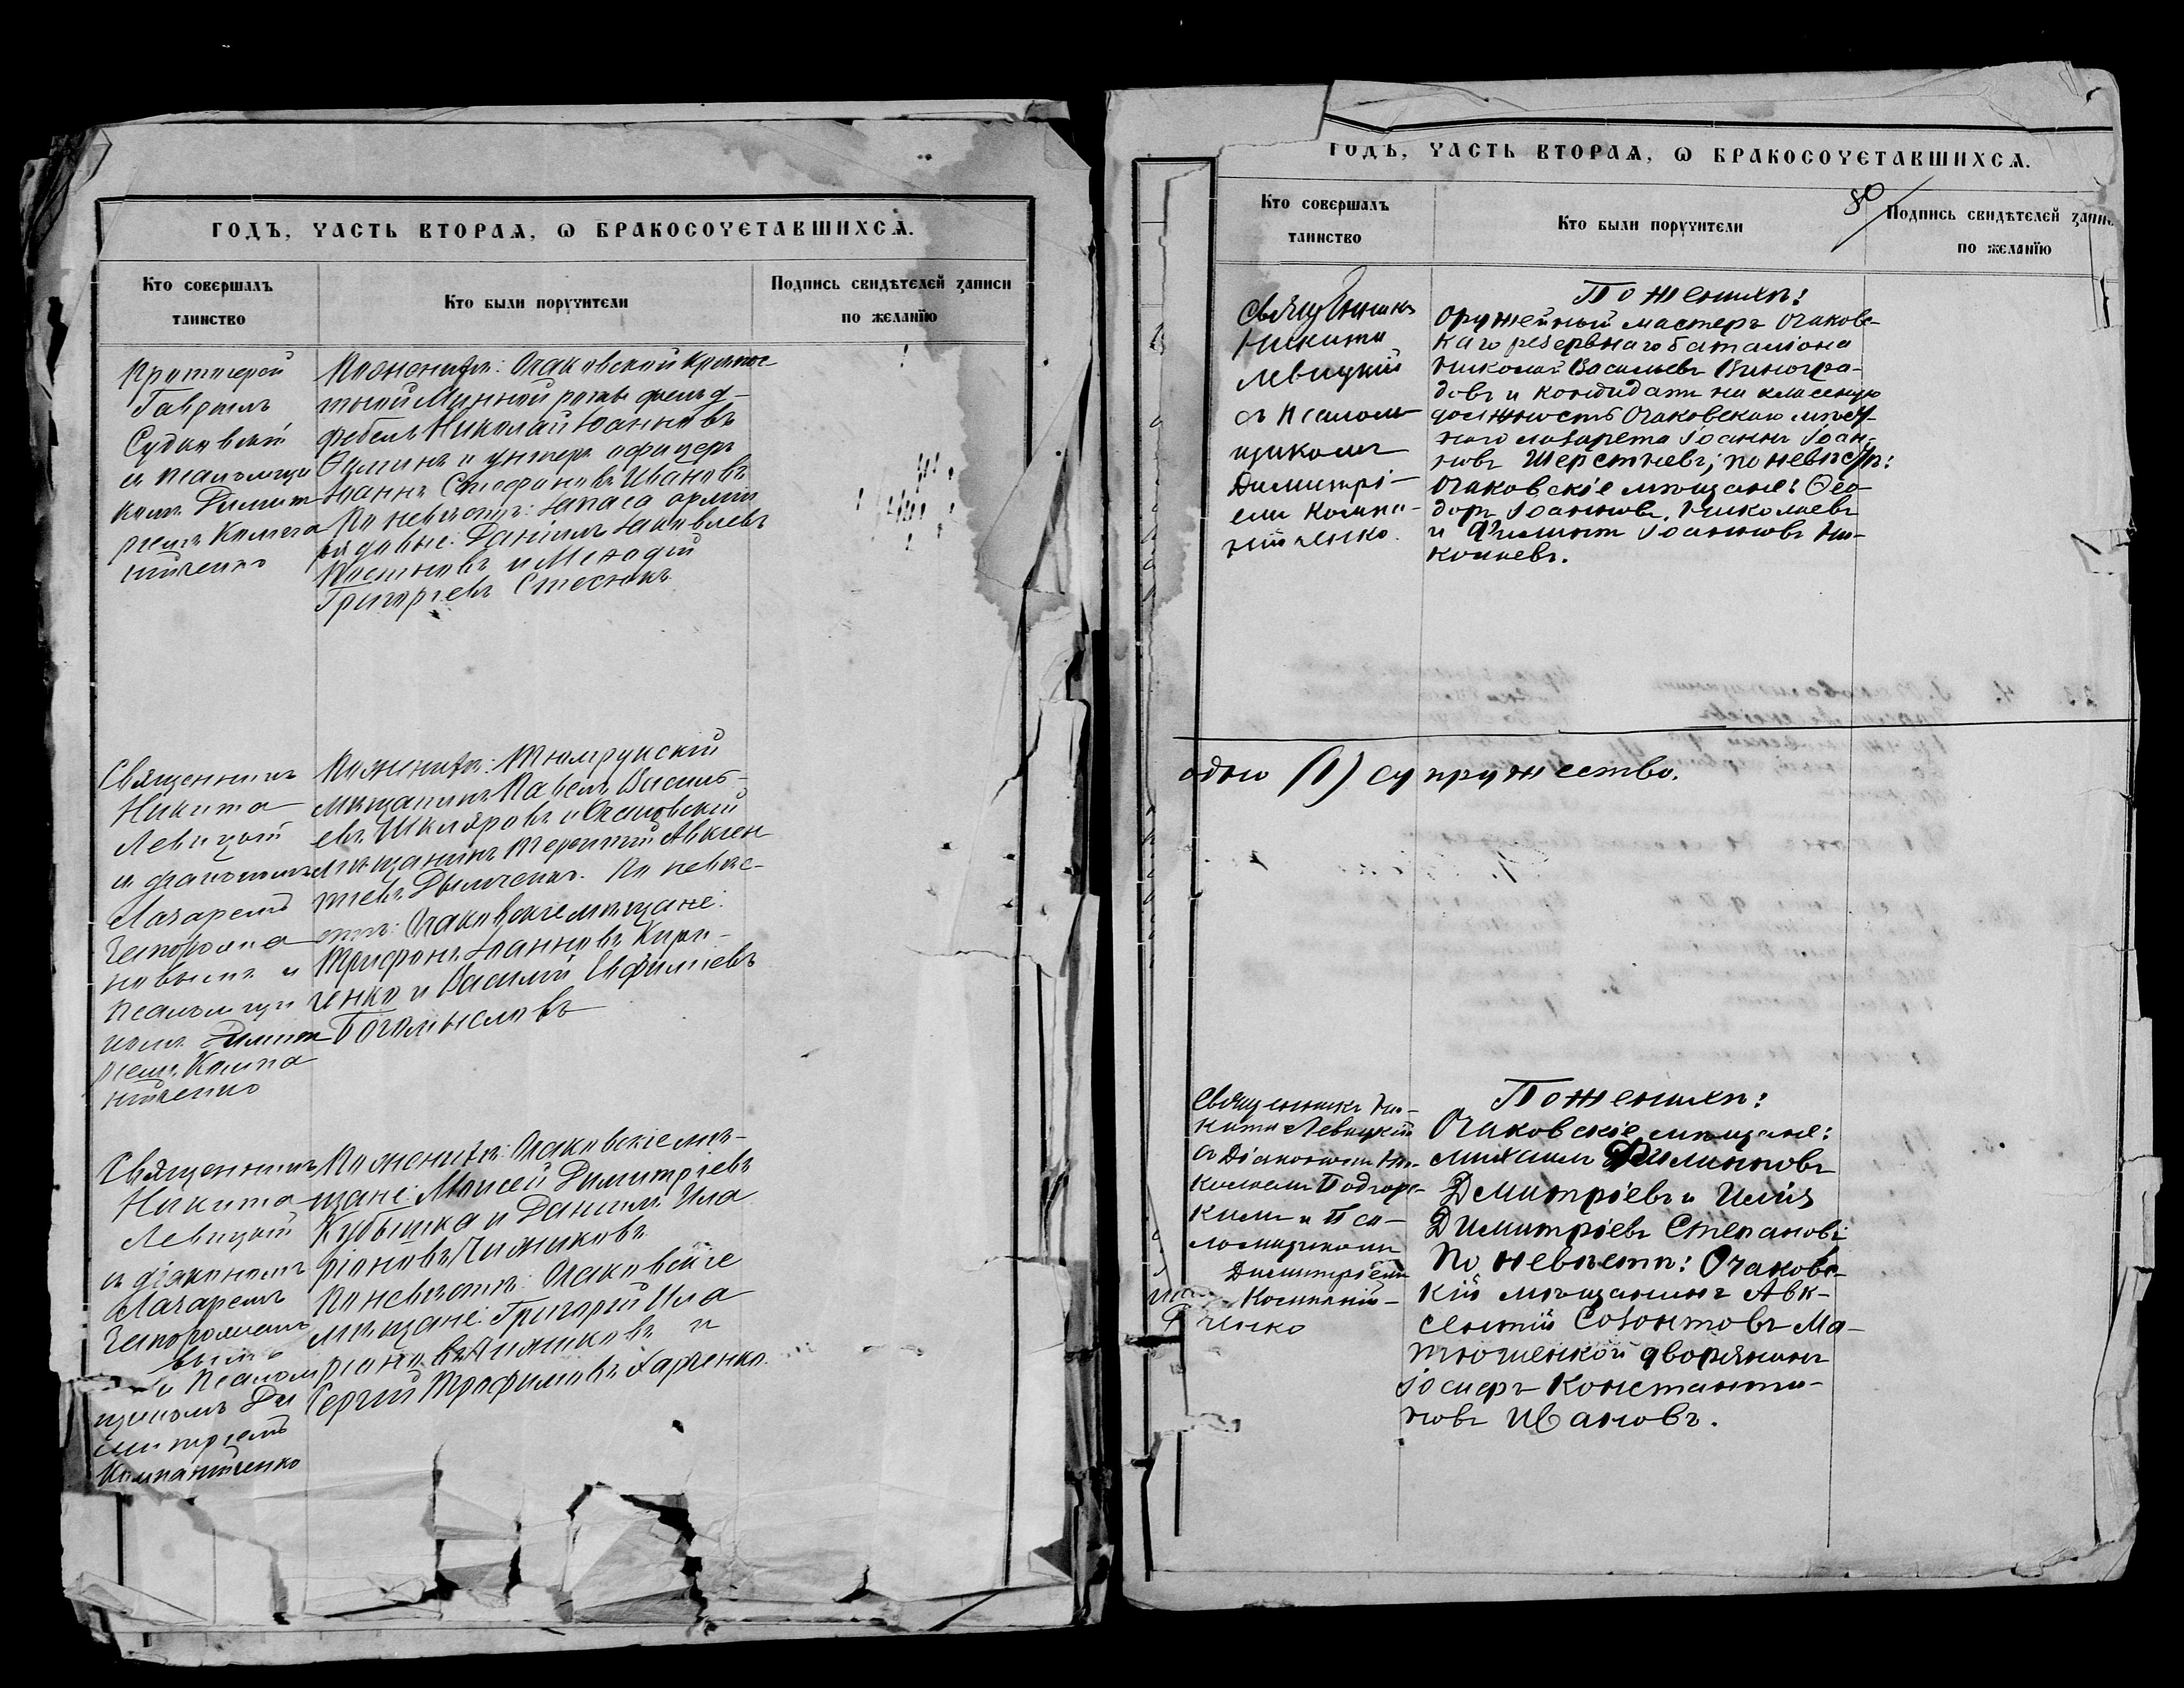 ГОДЪ, ЧАСТЬ ВТОРАѦ, Ѡ БРАКОСОЧЕТАВШИХСѦ.
Кто совершалъ
таинство
Кто были поручители
Подпись свидѣтелей записи
по желанїю
Протоіерей
Гавріилъ
Судковскій
и псаломщи
комъ Димит
ріемъ Компа
нійченко
По женихѣ: Очаковской крѣпос
тной Минной роты фельд-
фебель Николай Іоанновъ
и унтеръ офицеръ
Іоаннъ Стефановъ Ивановъ
По невѣстѣ: запаса арміи
рядовые: Даніилъ Іаковлевъ
и Меѳодій
Григорьевъ Стесюкъ
Священникъ
Никита
Левицкій
съ діакономъ
Лазаремъ
Чепороша
новымъ и
псаломщи
комъ Димит
ріемъ Компа
нійченко
По женихѣ:
мѣщанинъ Павелъ Василь-
евъ Шкляровъ и Очаковскій
мѣщанинъ Терентій Авксен
тіевъ Дымченко. По невѣс-
тѣ: Очаковскіе мѣщане:
Трифонъ Іоанновъ Кири-
ченко и Василій Евфиміевъ
Богомысловъ
Священникъ
Никита
Левицкій
съ діакономъ
Лазаремъ
и псалом
щикомъ Ди
митріемъ
Компанійченко
По женихѣ: Очаковскіе мѣ-
щане: Моисей Димитріевъ
Кубышка и Даніилъ Ила
ріоновъ Чижиковъ
По невѣстѣ: Очаковскіе
мѣщане: Григорій Ила
ріоновъ Чижиковъ и
Сергій Трофимовъ Харченко.
ГОДЪ, ЧАСТЬ ВТОРАѦ, Ѡ БРАКОСОЧЕТАВШИХСѦ.
80
Кто совершалъ
таинство
Кто были поручители
Подпись свидѣтелей запис
по желанїю
Священникъ
Никита
Левицкій
съ псалом-
щикомъ
Димитрі-
емъ Компа-
нійченко.
По женихѣ:
Оружейный мастеръ Очаковс-
каго резервнаго баталіона
Николай Васильевъ Виногра-
довъ и кандидатъ на классную
должность Очаковскаго мѣст-
наго лазарета Іоаннъ Іоан-
новъ Шерстневъ; по невѣстѣ:
Очаковскіе мѣщане: Ѳео-
доръ Іоанновъ Николаевъ
и Филиппъ Іоанновъ Ни-
колаевъ.
одно (1) супружество.
Священникъ Ни-
кита Левицкій
съ Діакономъ Ни-
колаемъ Подгорс-
кимъ и Пса-
ломщикомъ
Димитріемъ
Компаній-
ченко
По женихѣ:
Очаковскіе мѣщане:
Михаилъ Филипповъ
Димитріевъ и Илія
Димитріевъ Степановъ;
По невѣстѣ: Очаковс-
кій мѣщанинъ Авк-
сентій Созонтовъ Ма-
тюшенко и дворянинъ
Іосифъ Константи-
новъ Ивановъ.